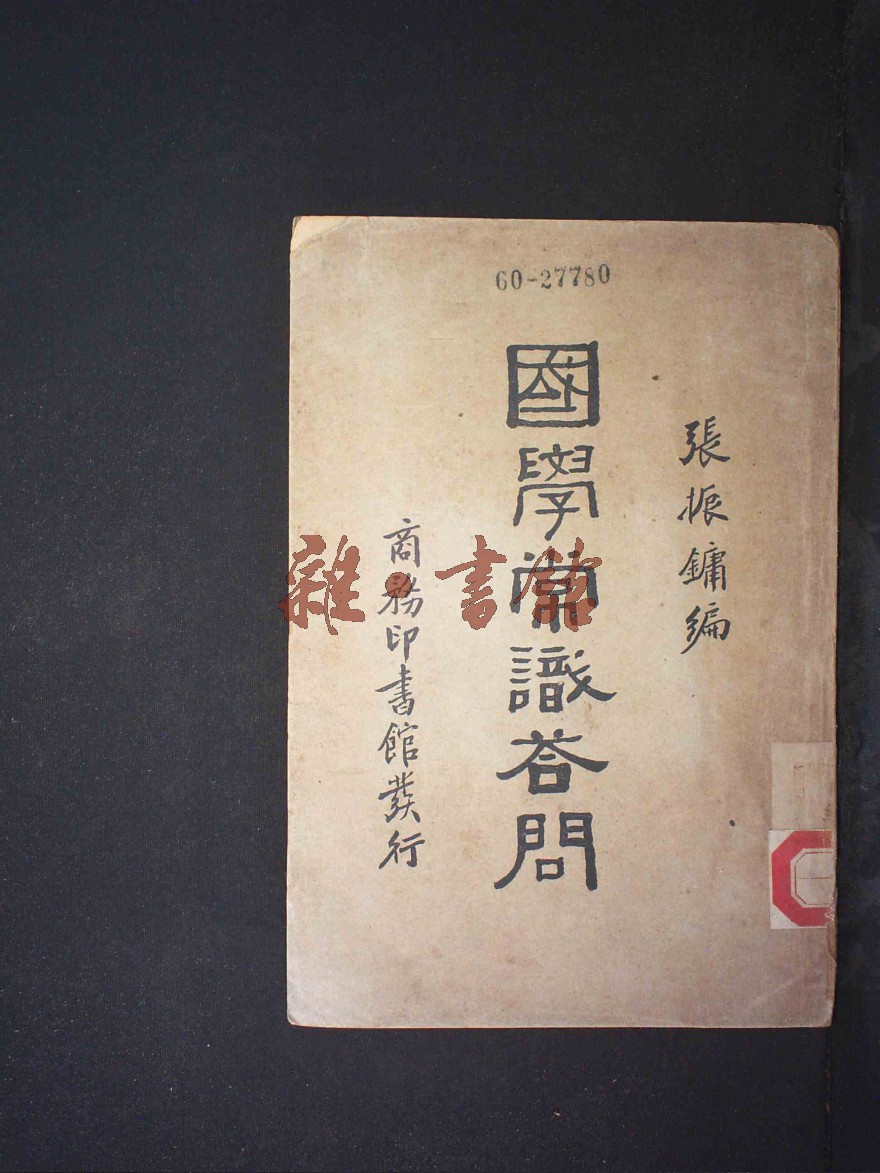 60-27780
張振鏞編
國學常識荅問
商務印書館發行
雜·書館